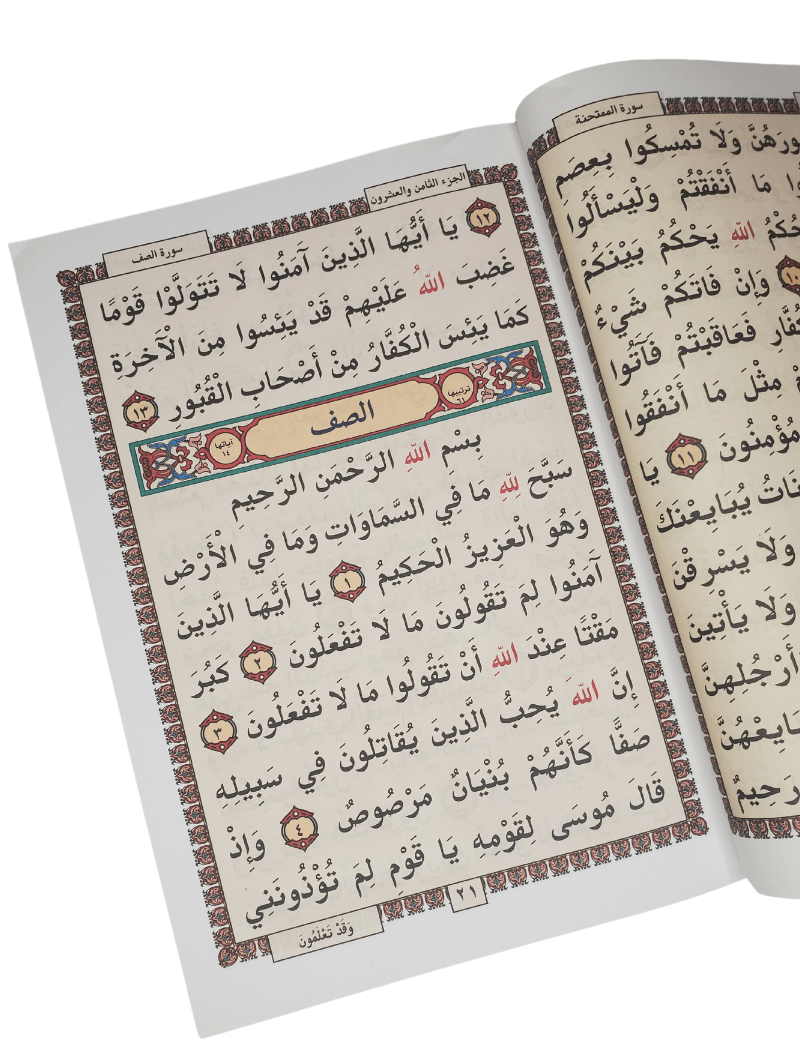 سورة الممتحنة
وَلَا تُمْسِكُوا بِعِصَمِ
مَا أَنْفَقْتُمْ وَلْيَسْأَلُوا
حُكْمُ اللَّهِ يَحْكُمُ بَيْنَكُمْ
١٠ وَإِنْ فَاتَكُمْ شَيْءٌ
فَعَاقَبْتُمْ فَآتُوا
مِثْلَ مَا أَنْفَقُوا
مُؤْمِنُونَ ١١ يَا
يُبَايِعْنَكَ
وَلَا يَسْرِقْنَ
وَلَا يَأْتِينَ
أَرْجُلِهِنَّ
ايِعْهُنَّ
رَحِيمٌ
الجزء الثامن والعشرون
سورة الصف
١٢ يَا أَيُّهَا الَّذِينَ آمَنُوا لَا تَتَوَلَّوْا قَوْمًا
غَضِبَ اللَّهُ عَلَيْهِمْ قَدْ يَئِسُوا مِنَ الْآخِرَةِ
كَمَا يَئِسَ الْكُفَّارُ مِنْ أَصْحَابِ الْقُبُورِ ١٣
ترتيبها ٦١ الصف آياتها ١٤
بِسْمِ اللَّهِ الرَّحْمَنِ الرَّحِيمِ
سَبَّحَ لِلَّهِ مَا فِي السَّمَاوَاتِ وَمَا فِي الْأَرْضِ
وَهُوَ الْعَزِيزُ الْحَكِيمُ ١ يَا أَيُّهَا الَّذِينَ
آمَنُوا لِمَ تَقُولُونَ مَا لَا تَفْعَلُونَ ٢ كَبُرَ
مَقْتًا عِنْدَ اللَّهِ أَنْ تَقُولُوا مَا لَا تَفْعَلُونَ ٣
إِنَّ اللَّهَ يُحِبُّ الَّذِينَ يُقَاتِلُونَ فِي سَبِيلِهِ
صَفًّا كَأَنَّهُمْ بُنْيَانٌ مَرْصُوصٌ ٤ وَإِذْ
قَالَ مُوسَى لِقَوْمِهِ يَا قَوْمِ لِمَ تُؤْذُونَنِي
٢١
وَقَدْ تَعْلَمُونَ